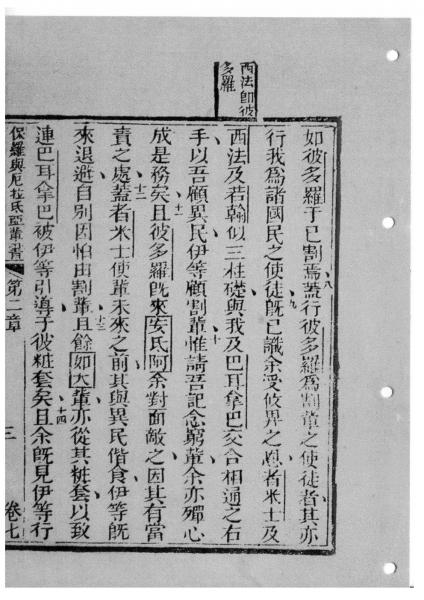 西法即彼
多羅
如彼多羅于已割焉蓋行彼多羅爲割輩之使徒者其亦
八
行我爲諸國民之使徒旣已識余受攸畀之恩者米士及
九
西法及若翰似三柱礎與我及巴耳拿巴交合相通之右
手以吾顧異民伊等顧割輩惟請吾記念窮輩余亦殫心
十
成是務矣且彼多羅旣來安氏阿余對面敵之因其有當
十一
責之處蓋者米士使輩未來之前其與異民偕食伊等旣
十二
來退避自別因怕由割輩且餘如大輩亦從其粧套以致
十三
連巴耳拿巴被伊等引導于彼粧套矣且余旣見伊等行
十四
第二章
三
卷七